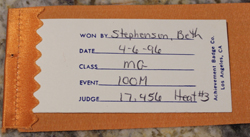 WON BY Stephenson, Beth
DATE 4-6-96
CLASS MG
EVENT 100M
JUDGE 17.456 Heat #3
Achievement Badge Co.
Los Angeles, CA